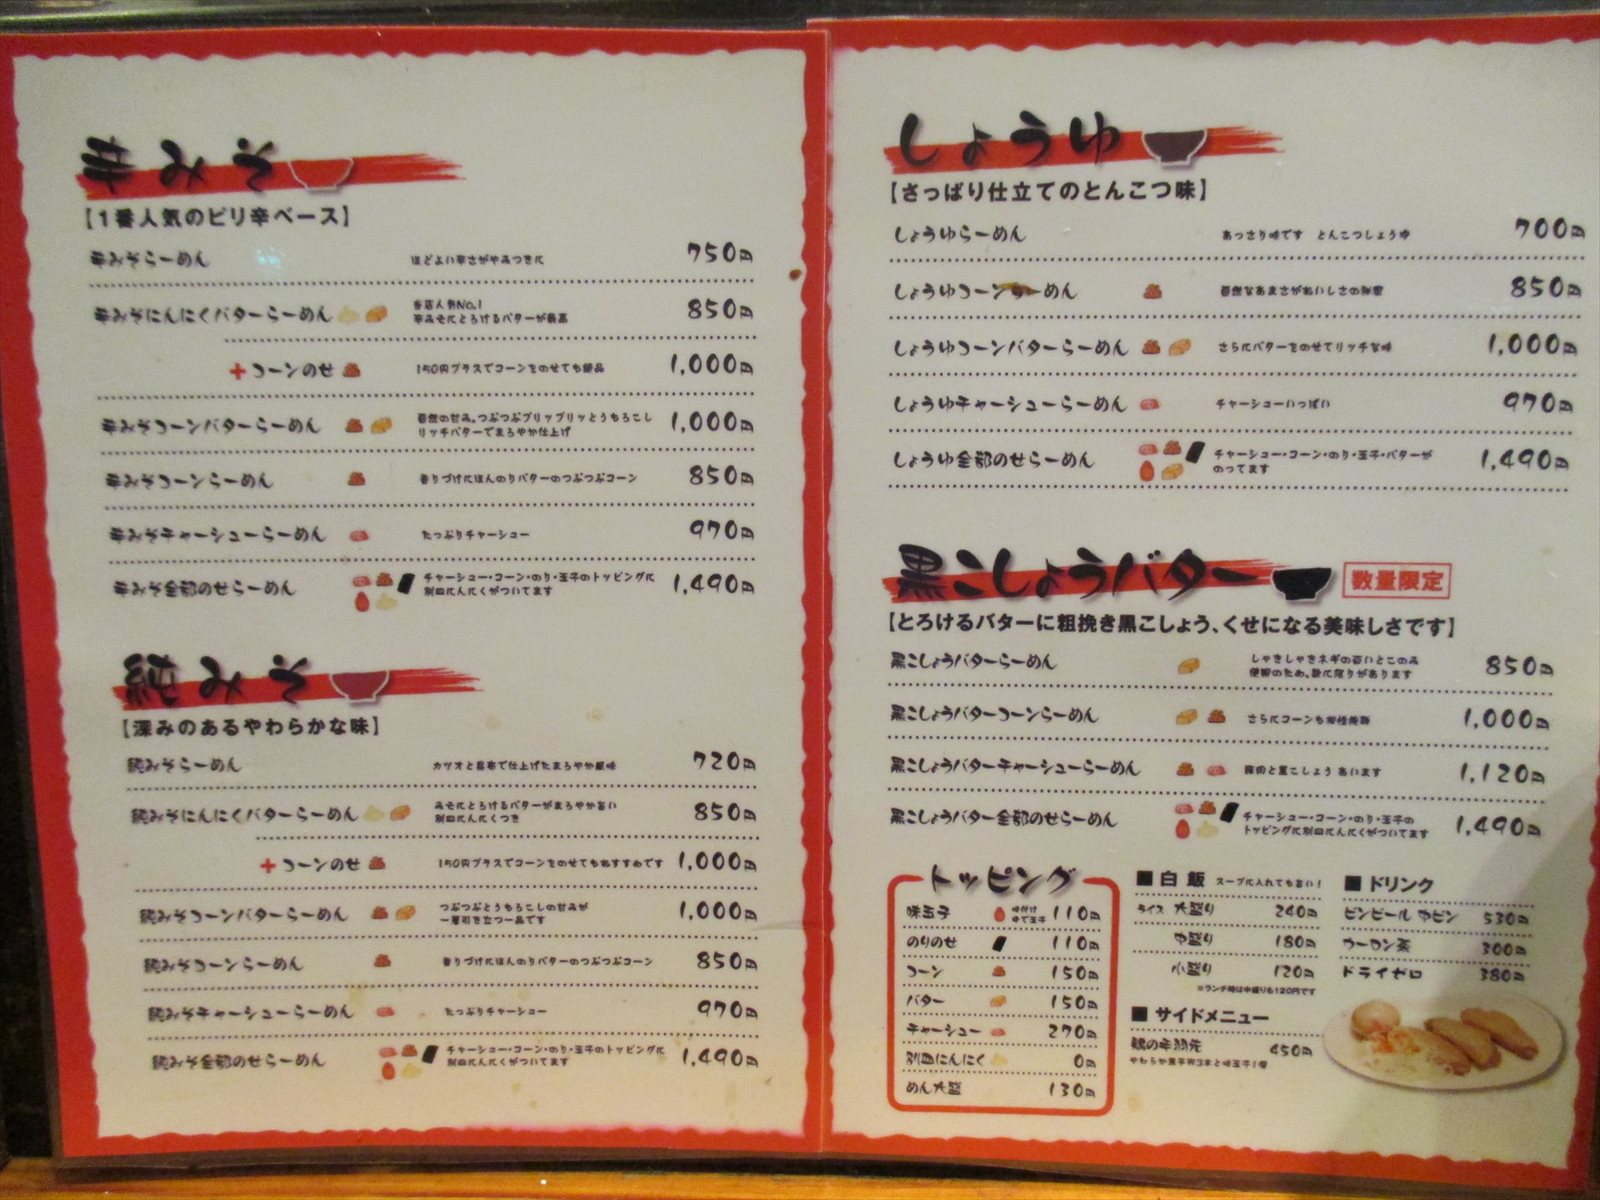 辛みそ
【1番人気のピリ辛ベース】
辛みそらーめん ほどよい辛さがやみつきに 750円
辛みそにんにくバターらーめん 当店人気No.1 850円
辛みそにとろけるバターが最高
+コーンのせ 150円プラスでコーンをのせても絶品 1,000円
辛みそコーンバターらーめん 自然の甘み。つぶつぶプリップリッとうもろこし 1,000円
リッチバターでまろやか仕上げ
辛みそコーンらーめん 香りづけにほんのりバターのつぶつぶコーン 850円
辛みそチャーシューらーめん たっぷりチャーシュー 970円
辛みそ全部のせらーめん チャーシュー・コーン・のり・玉子のトッピングに 1,490円
別皿にんにくがついてます
純みそ
【深みのあるやわらかな味】
純みそらーめん カツオと昆布で仕上げたまろやか風味 720円
純みそにんにくバターらーめん みそにとろけるバターがまろやか旨い 850円
別皿にんにくつき
+コーンのせ 150円プラスでコーンをのせてもおすすめです 1,000円
純みそコーンバターらーめん つぶつぶとうもろこしの甘みが 1,000円
一層引き立つ一品です
純みそコーンらーめん 香りづけにほんのりバターのつぶつぶコーン 850円
純みそチャーシューらーめん たっぷりチャーシュー 970円
純みそ全部のせらーめん チャーシュー・コーン・のり・玉子のトッピングに 1,490円
別皿にんにくがついてます
しょうゆ
【さっぱり仕立てのとんこつ味】
しょうゆらーめん あっさり味です とんこつしょうゆ 700円
しょうゆコーンらーめん 自然なあまさがおいしさの秘密 850円
しょうゆコーンバターらーめん さらにバターをのせてリッチな味 1,000円
しょうゆチャーシューらーめん チャーシューいっぱい 970円
しょうゆ全部のせらーめん チャーシュー・コーン・のり・玉子・バターが 1,490円
のってます
黒こしょうバター 数量限定
【とろけるバターに粗挽き黒こしょう、くせになる美味しさです】
黒こしょうバターらーめん しゃきしゃきネギの白いとこのみ 850円
使用のため、数に限りがあります
黒こしょうバターコーンらーめん さらにコーンも 1,000円
黒こしょうバターチャーシューらーめん 豚肉と黒こしょう あいます 1,120円
黒こしょうバター全部のせらーめん チャーシュー・コーン・のり・玉子の 1,490円
トッピングに別皿にんにくがついてます
トッピング
味玉子 味付けゆで玉子 110円
のりのせ 110円
コーン 150円
バター 150円
チャーシュー 270円
別皿にんにく 0円
めん大盛 130円
■白飯 スープに入れても旨い!
ライス 大盛り 240円
中盛り 180円
小盛り 120円
※ランチ時は中盛りも120円です
■サイドメニュー
鶏の手羽先 450円
やわらか煮手羽3本と味玉子1個
■ドリンク
ビンビール 中ビン 530円
ウーロン茶 300円
ドライゼロ 380円